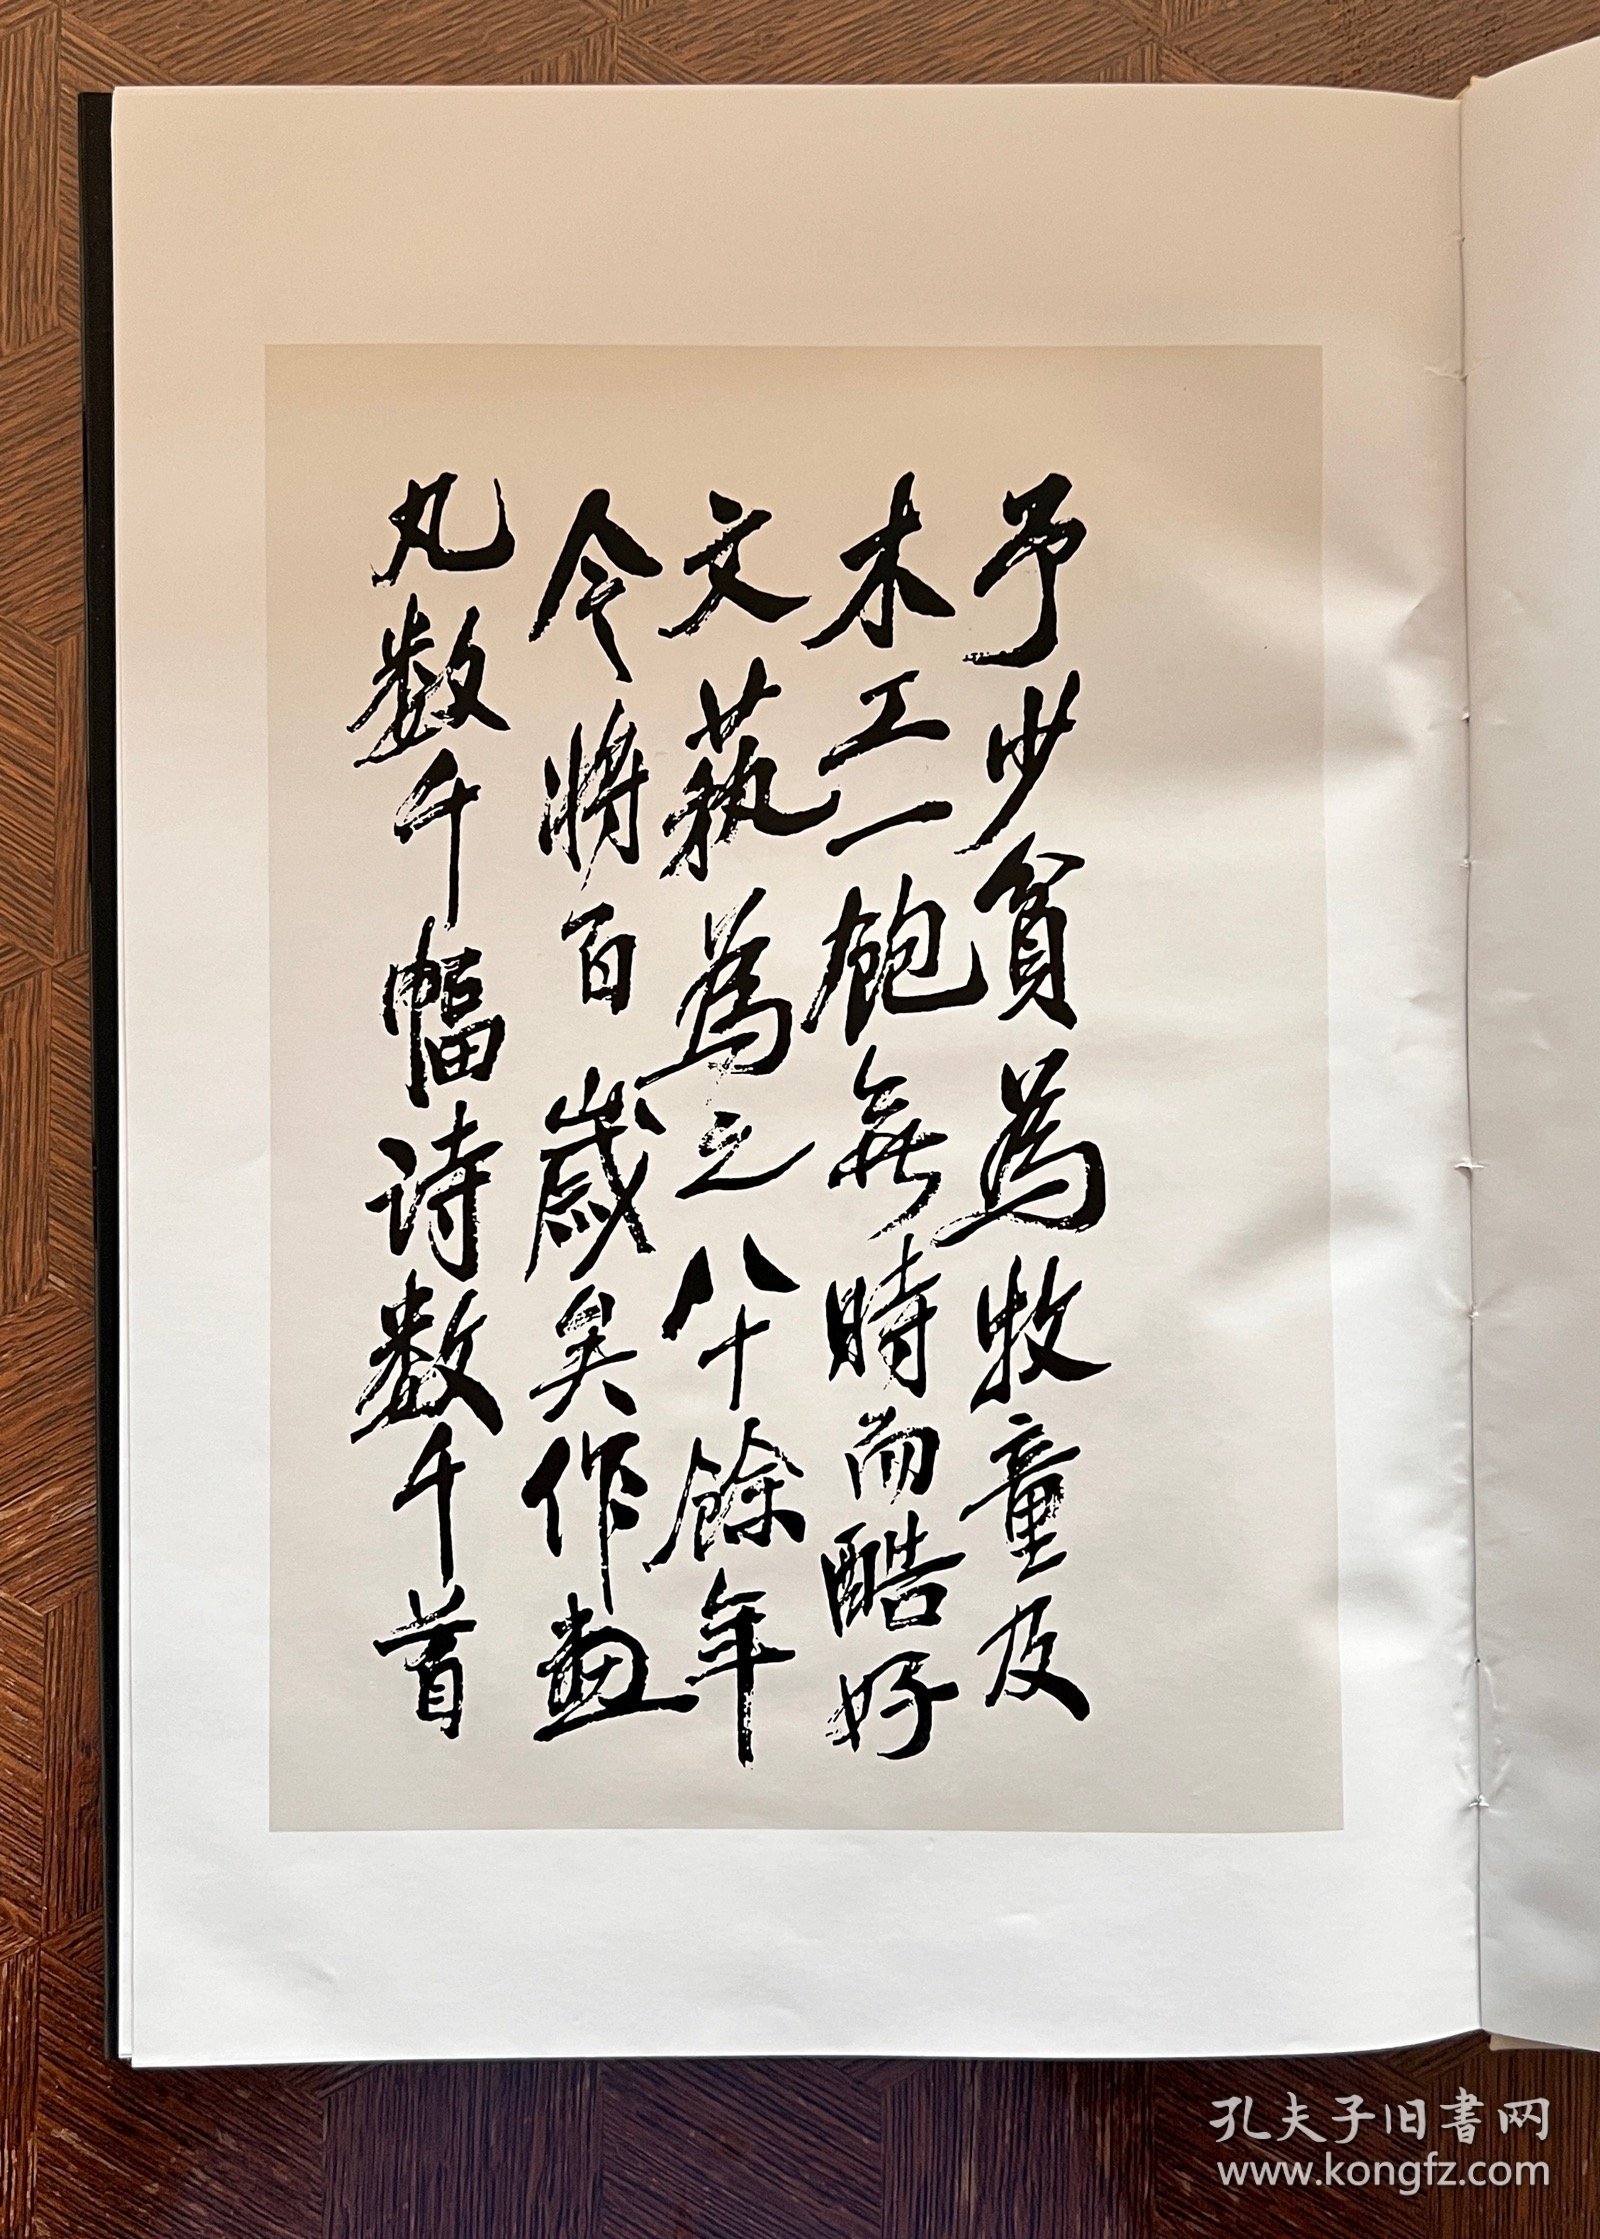 予少貧為牧童及
木工一飽無時而酷好
文藝為之八十餘年
今將百歲矣作畫
凡數千幅詩數千首
孔夫子旧書网
www.kongfz.com